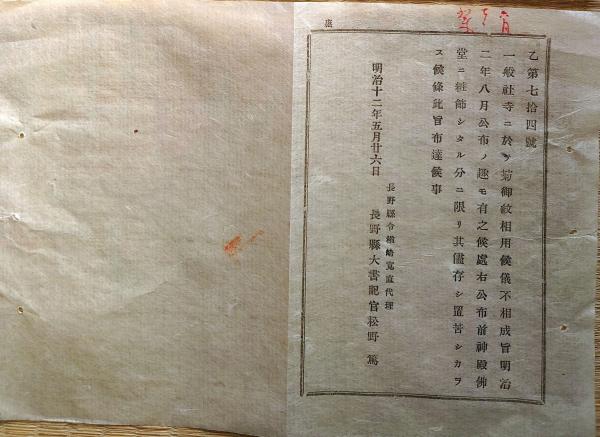 乙第七拾四號
一般社寺ニ於テ菊御紋相用候儀不相成旨明治
二年八月公布ノ趣モ有之候處右公布前神殿佛
堂ニ粧飾シタル分ニ限リ其儘存シ置苦シカラ
ス候條此旨布達候事
明治十二年五月廿六日
長野縣令楢崎寛直代理
長野縣大書記官松野篤